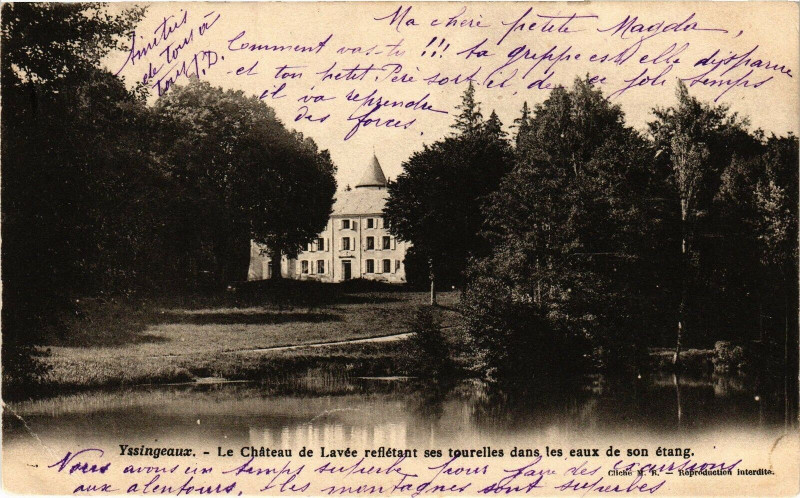 Ma chère petite Magda,
Comment vas-tu !!! ta grippe est elle disparue
et ton petit Père sort il, de ce joli temps
il va reprendre
des forces.
Amitiés
de tous à
tous J.D.
Yssingeaux. - Le Château de Lavée reflétant ses tourelles dans les eaux de son étang.
Cliché M. B. - Reproduction interdite.
Nous avons un temps superbe pour faire des excursions
aux alentours, les montagnes sont superbes